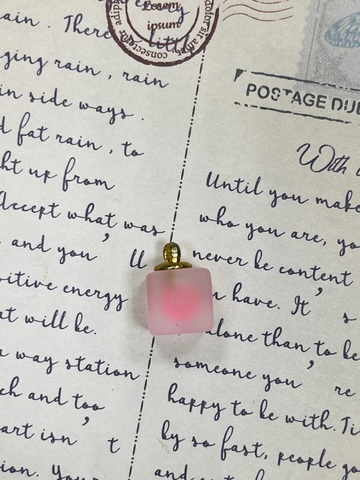 adipi
Lorem
ipsum
consectetu
color sit ame
ain. There
little
ging rain, rain
in side ways.
d fat rain, to
ht up from
Accept what was
and you' ll
sitive energy
at will be.
way station
ch and too
art isn' t
ion. You
POSTAGE DUE
With
Until you make
who you are, yo
never be content
have. It' s
alone than to be
someone you' re
happy to be with. Ti
by so fast, people go